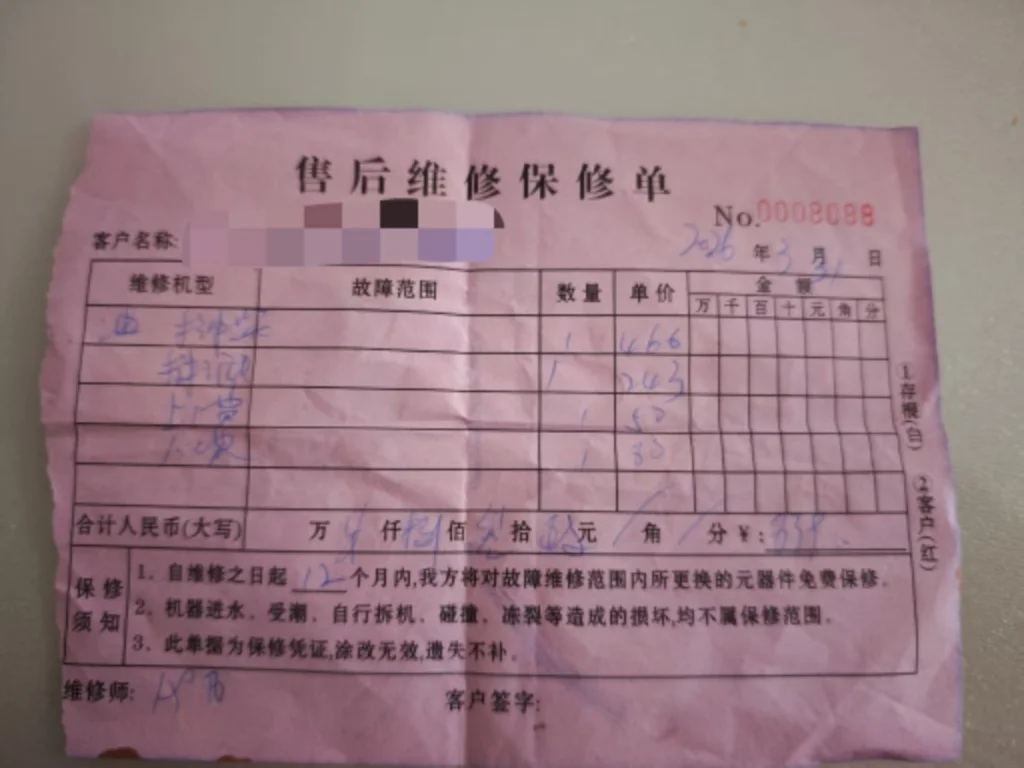 售后维修保修单
No.0008088
客户名称:
2026年3月31日
维修机型 故障范围 数量 单价 金额
万 千 百 十 元 角 分
1 466
1 243
1 50
1 80
合计人民币(大写) 万 仟 佰 拾 元 / 角 / 分 ¥:
保修须知
1、自维修之日起12个月内,我方将对故障维修范围内所更换的元器件免费保修。
2、机器进水、受潮、自行拆机、碰撞、冻裂等造成的损坏,均不属保修范围。
3、此单据为保修凭证,涂改无效,遗失不补。
维修师:
客户签字:
1.存根(白)
2.客户(红)